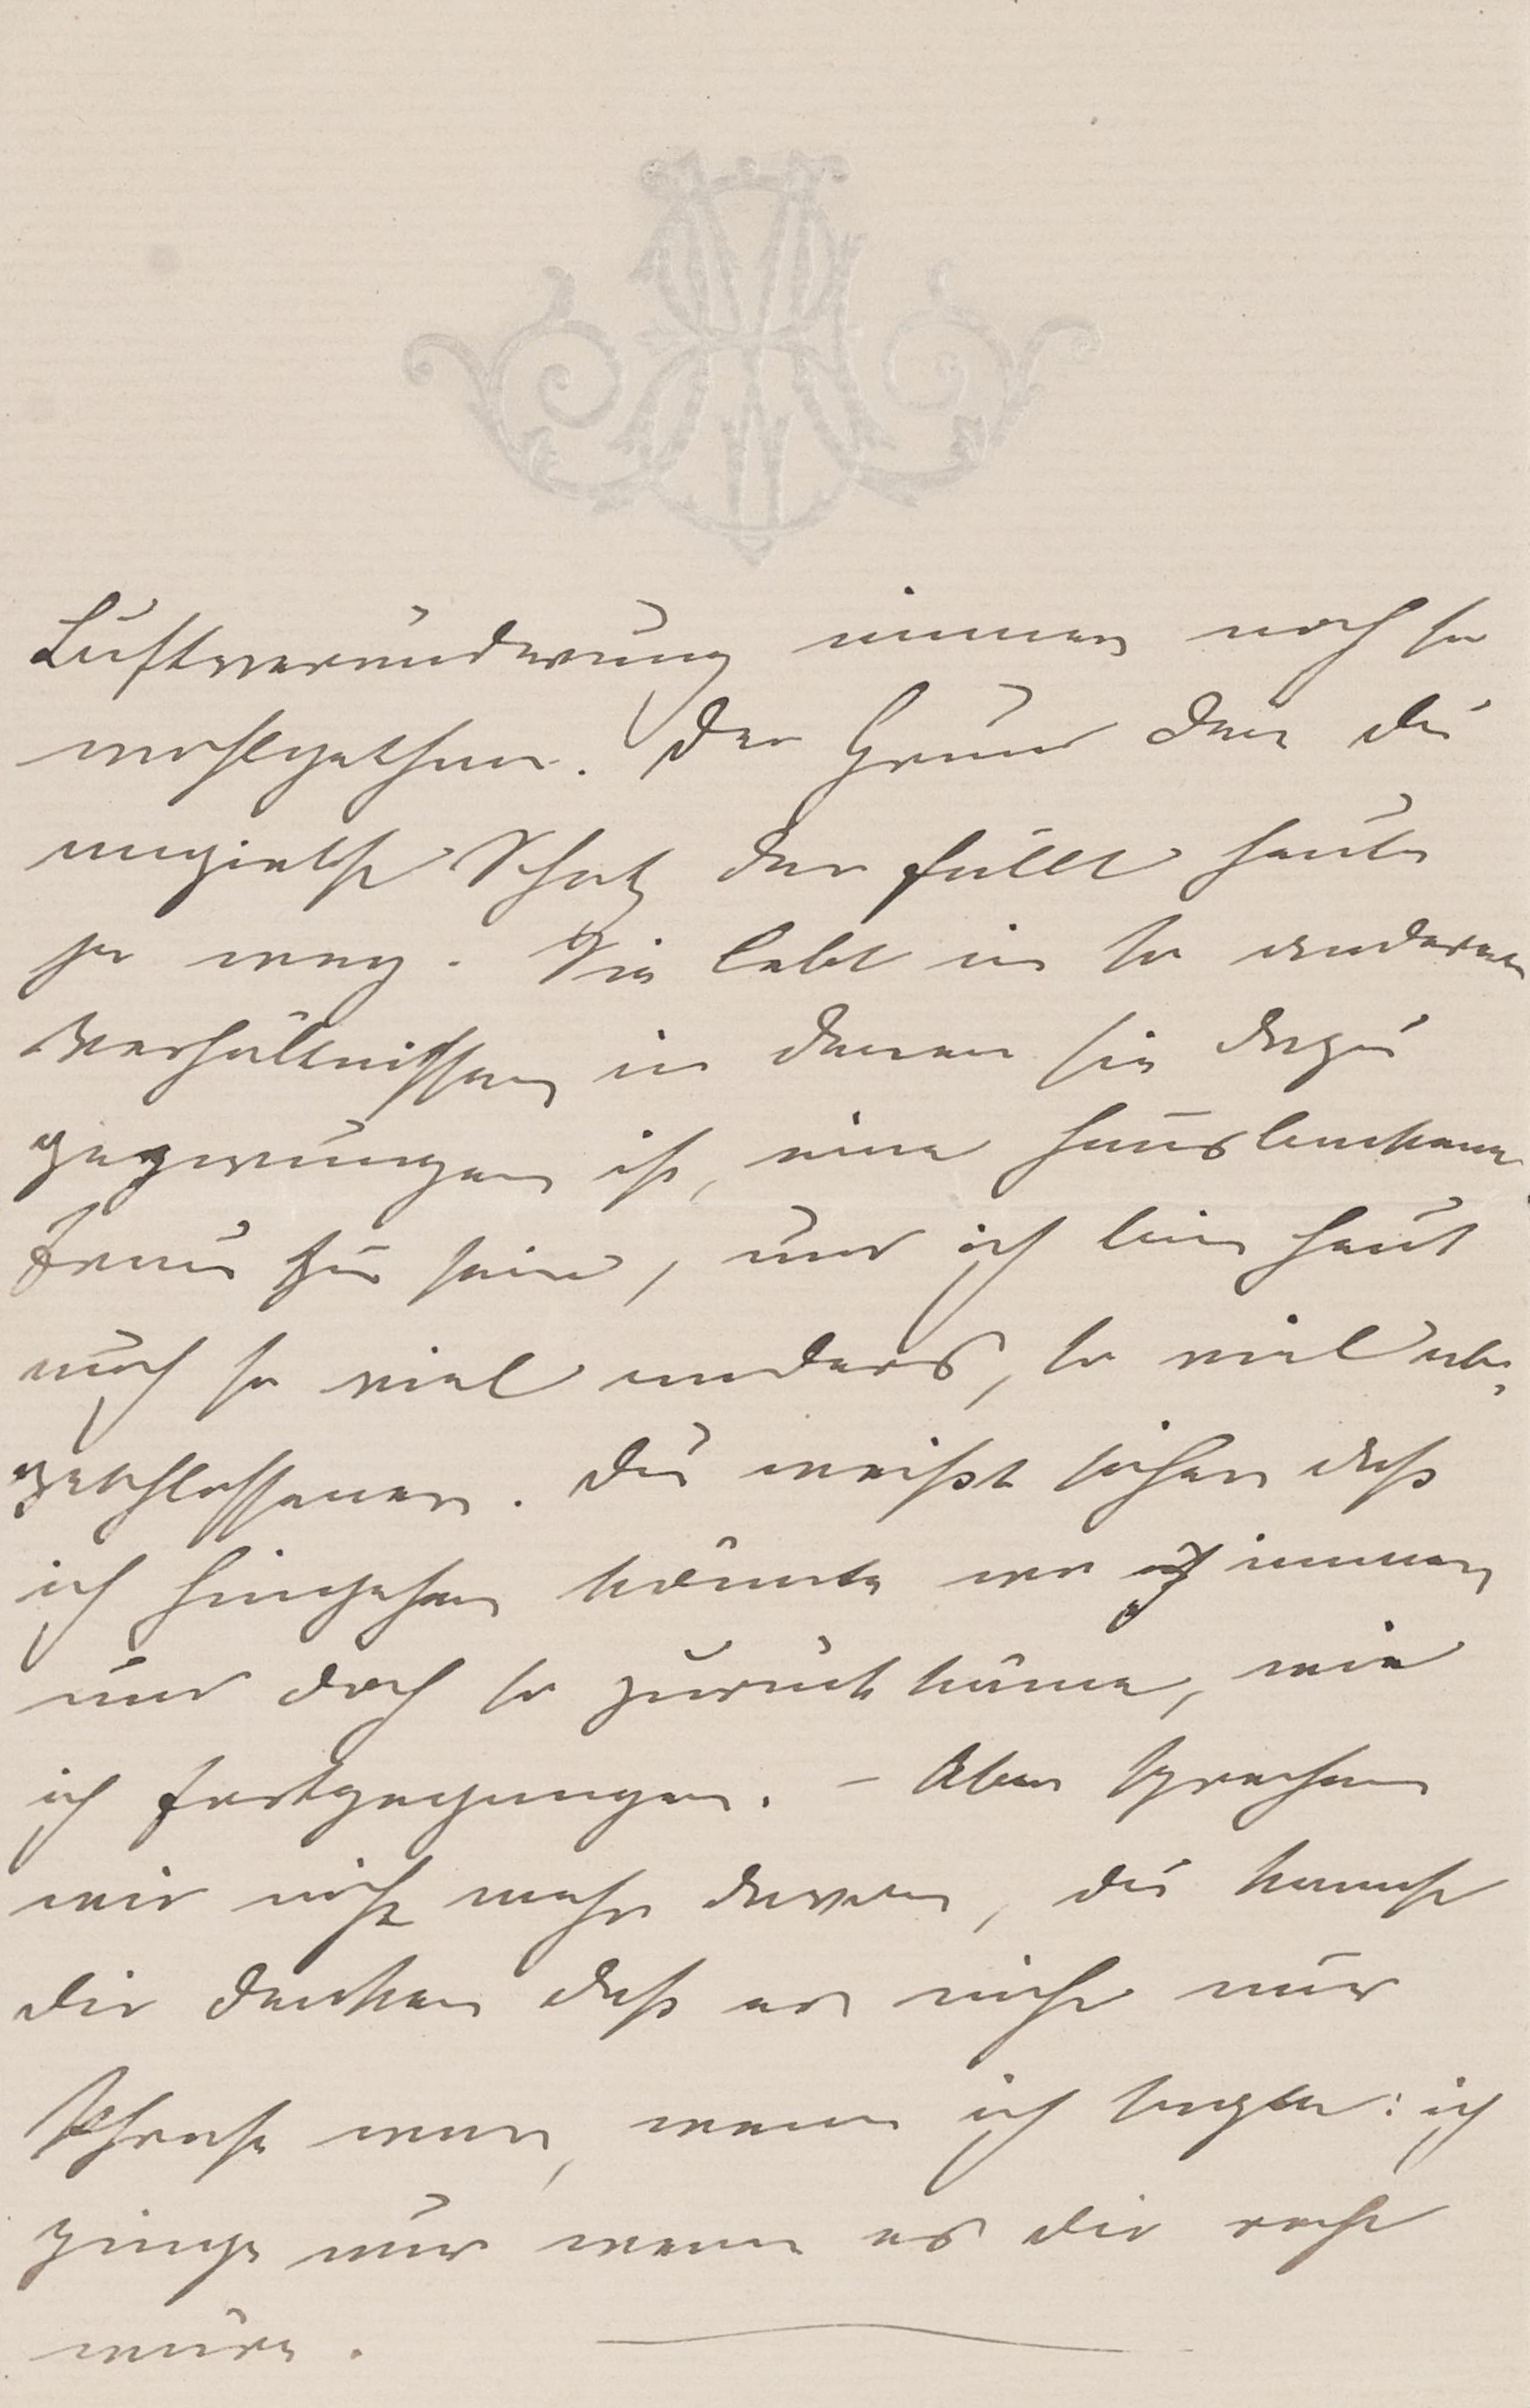 Luftveränderung immer noch so
wohlgethan. Der Grund den du
angiebst Schatz der fällt heute
ja weg. Sie lebt in so anderen
Verhältnissen in denen sie dazu
gezwungen ist, eine
Frau zu sein, und ich bin heut
auch so viel anders, so viel ab-
geschlossener. Du weißt sicher daß
ich hingehen könnte wo ich immer
und doch so zurück käme, wie
ich fortgegangen. – Aber sprechen
wir nicht mehr davon, du kannst
dir denken daß es nicht nur
Phrase war, wenn ich sagte: ich
ginge nur wenn es dir recht
wäre.